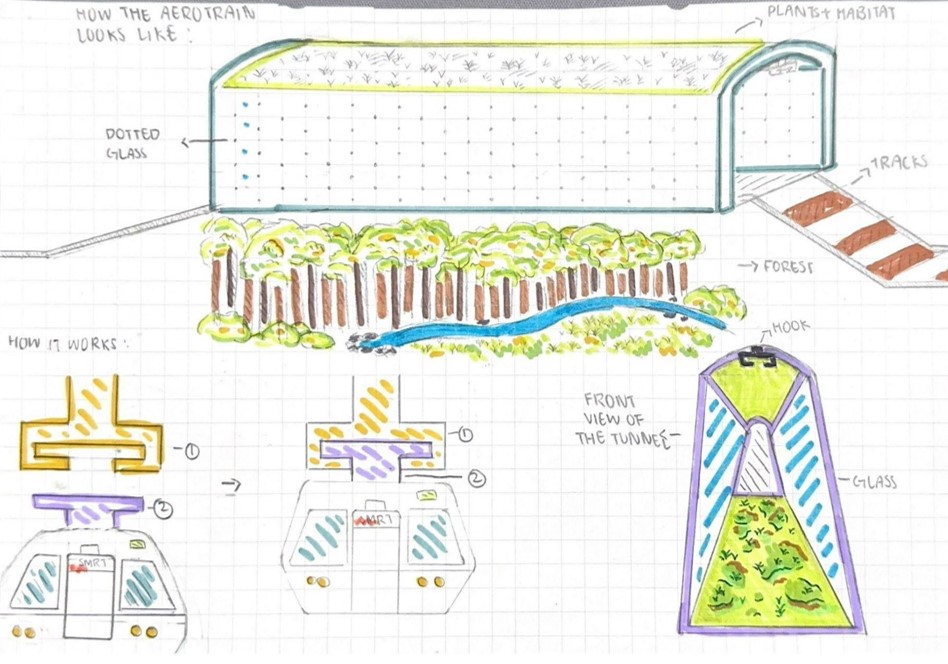 HOW THE AEROTRAIN
LOOKS LIKE :
PLANTS + HABITAT
DOTTED
GLASS
TRACKS
FOREST
HOW IT WORKS :
HOOK
①
②
SMRT
①
②
SMRT
FRONT
VIEW OF
THE TUNNEL
GLASS